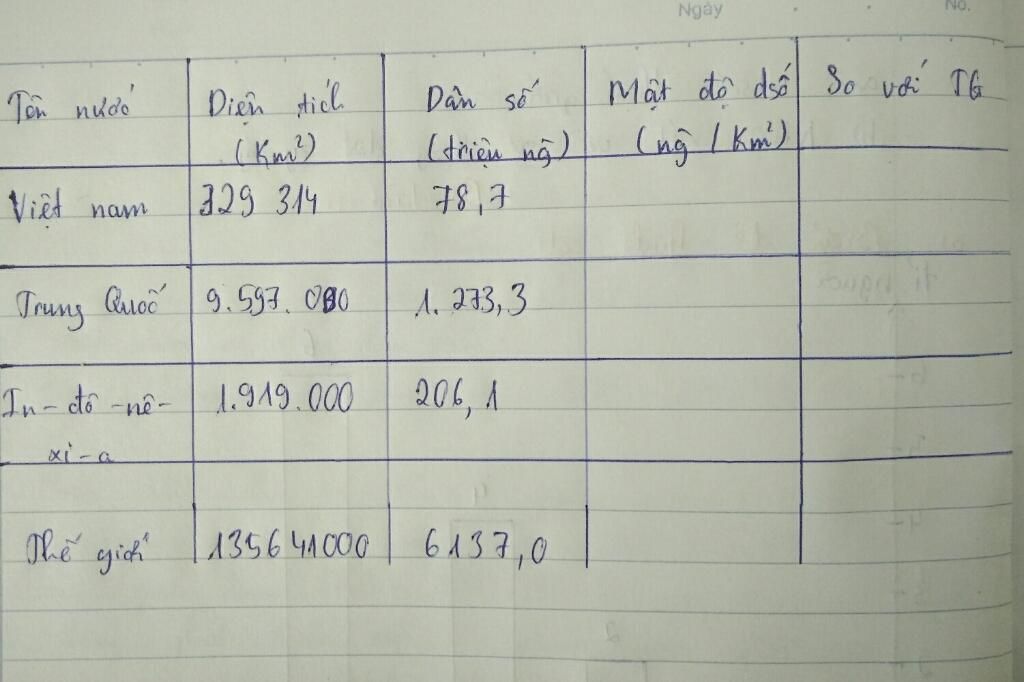 Ngày No.
Tên nước Diện tích Dân số Mật độ dsố So với TG
(Km²) (triệu ng) (ng / Km²)
Việt nam 329 314 78,7
Trung Quốc 9.597.000 1.273,3
In-đô-nê- 1.919.000 206,1
xi-a
Thế giới 135641000 6137,0